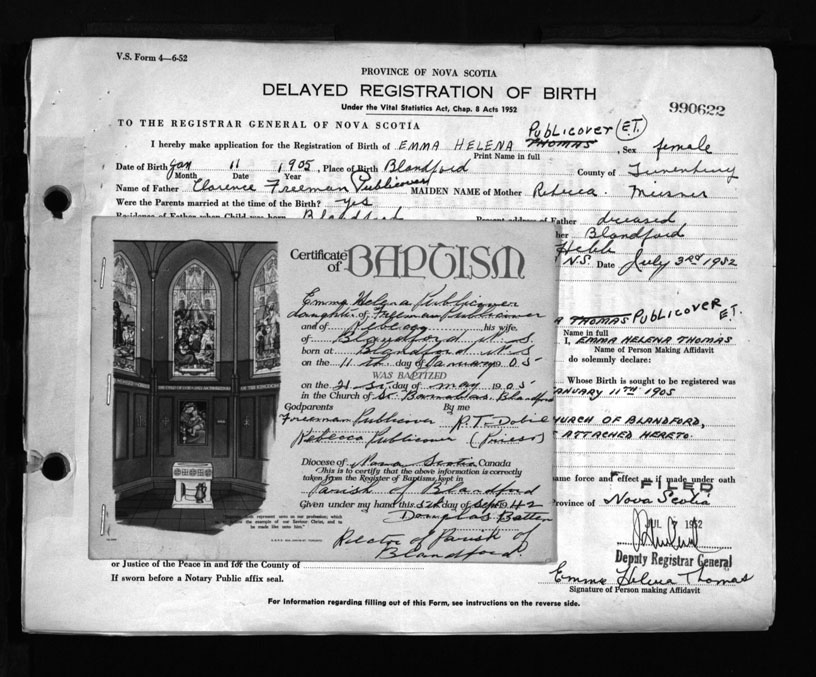 V.S. Form 4—6-52
PROVINCE OF NOVA SCOTIA
DELAYED REGISTRATION OF BIRTH
Under the Vital Statistics Act, Chap. 8 Acts 1952
990622
TO THE REGISTRAR GENERAL OF NOVA SCOTIA
PUBLICOVER (E.T.)
I hereby make application for the Registration of Birth of EMMA HELENA THOMAS, Sex female
Print Name in full
Date of Birth Jan 11 1905, Place of Birth Blandford County of Lunenburg
Month Date Year
Name of Father Clarence Freeman Publicover MAIDEN NAME of Mother Rebecca Meisner
Were the Parents married at the time of the Birth? yes
Residence of Father when Child was born Blandford Present address of Father deceased
her Blandford
Hebb
N.S. Date July 3rd 1952
A THOMAS PUBLICOVER E.T.
Name in full
I, EMMA HELENA THOMAS
Name of Person Making Affidavit
do solemnly declare:
Whose Birth is sought to be registered was
JANUARY 11TH 1905
CHURCH OF BLANDFORD,
ATTACHED HERETO.
same force and effect as if made under oath
FILED
Province of Nova Scotia
JUL 1952
Deputy Registrar General
Certificate of BAPTISM
Emma Helena Publicover
daughter of Freeman Publicover
and of Rebecca his wife.
of Blandford N.S.
born at Blandford N.S.
on the 11th day of January 1905
WAS BAPTIZED
on the 21st day of May 1905
in the Church of St. Barnabas, Blandford
Godparents By me
Freeman Publicover R.T. (Priest)
Rebecca Publicover
Diocese of Nova Scotia Canada
This is to certify that the above information is correctly
taken from the Register of Baptisms kept in
Parish of Blandford
Given under my hand this 5th day of Sept 1942
Douglas Batten
Rector of Parish of
Blandford.
represent unto us our profession; which
the example of our Saviour Christ, and to
be made like unto him."
or Justice of the Peace in and for the County of
If sworn before a Notary Public affix seal.
Emma Helena Thomas
Signature of Person making Affidavit
For Information regarding filling out of this Form, see instructions on the reverse side.